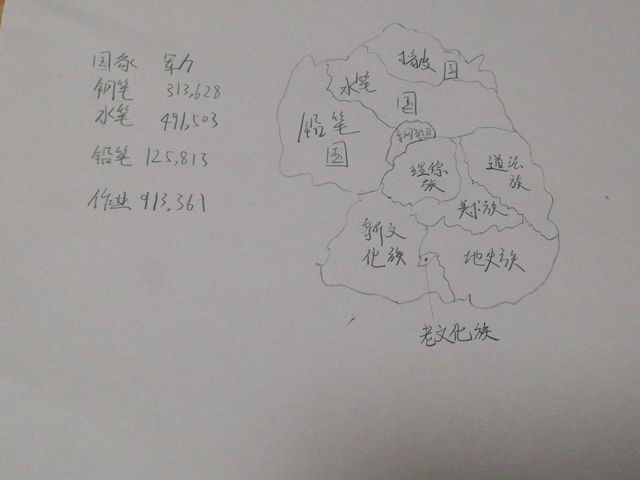 国家 军力
钢笔 313,628
水笔 491,503
铅笔 125,813
作业 913,361
橡皮国
水笔国
铅笔国
钢笔国
道法族
美术族
新文化族
地史族
老文化族